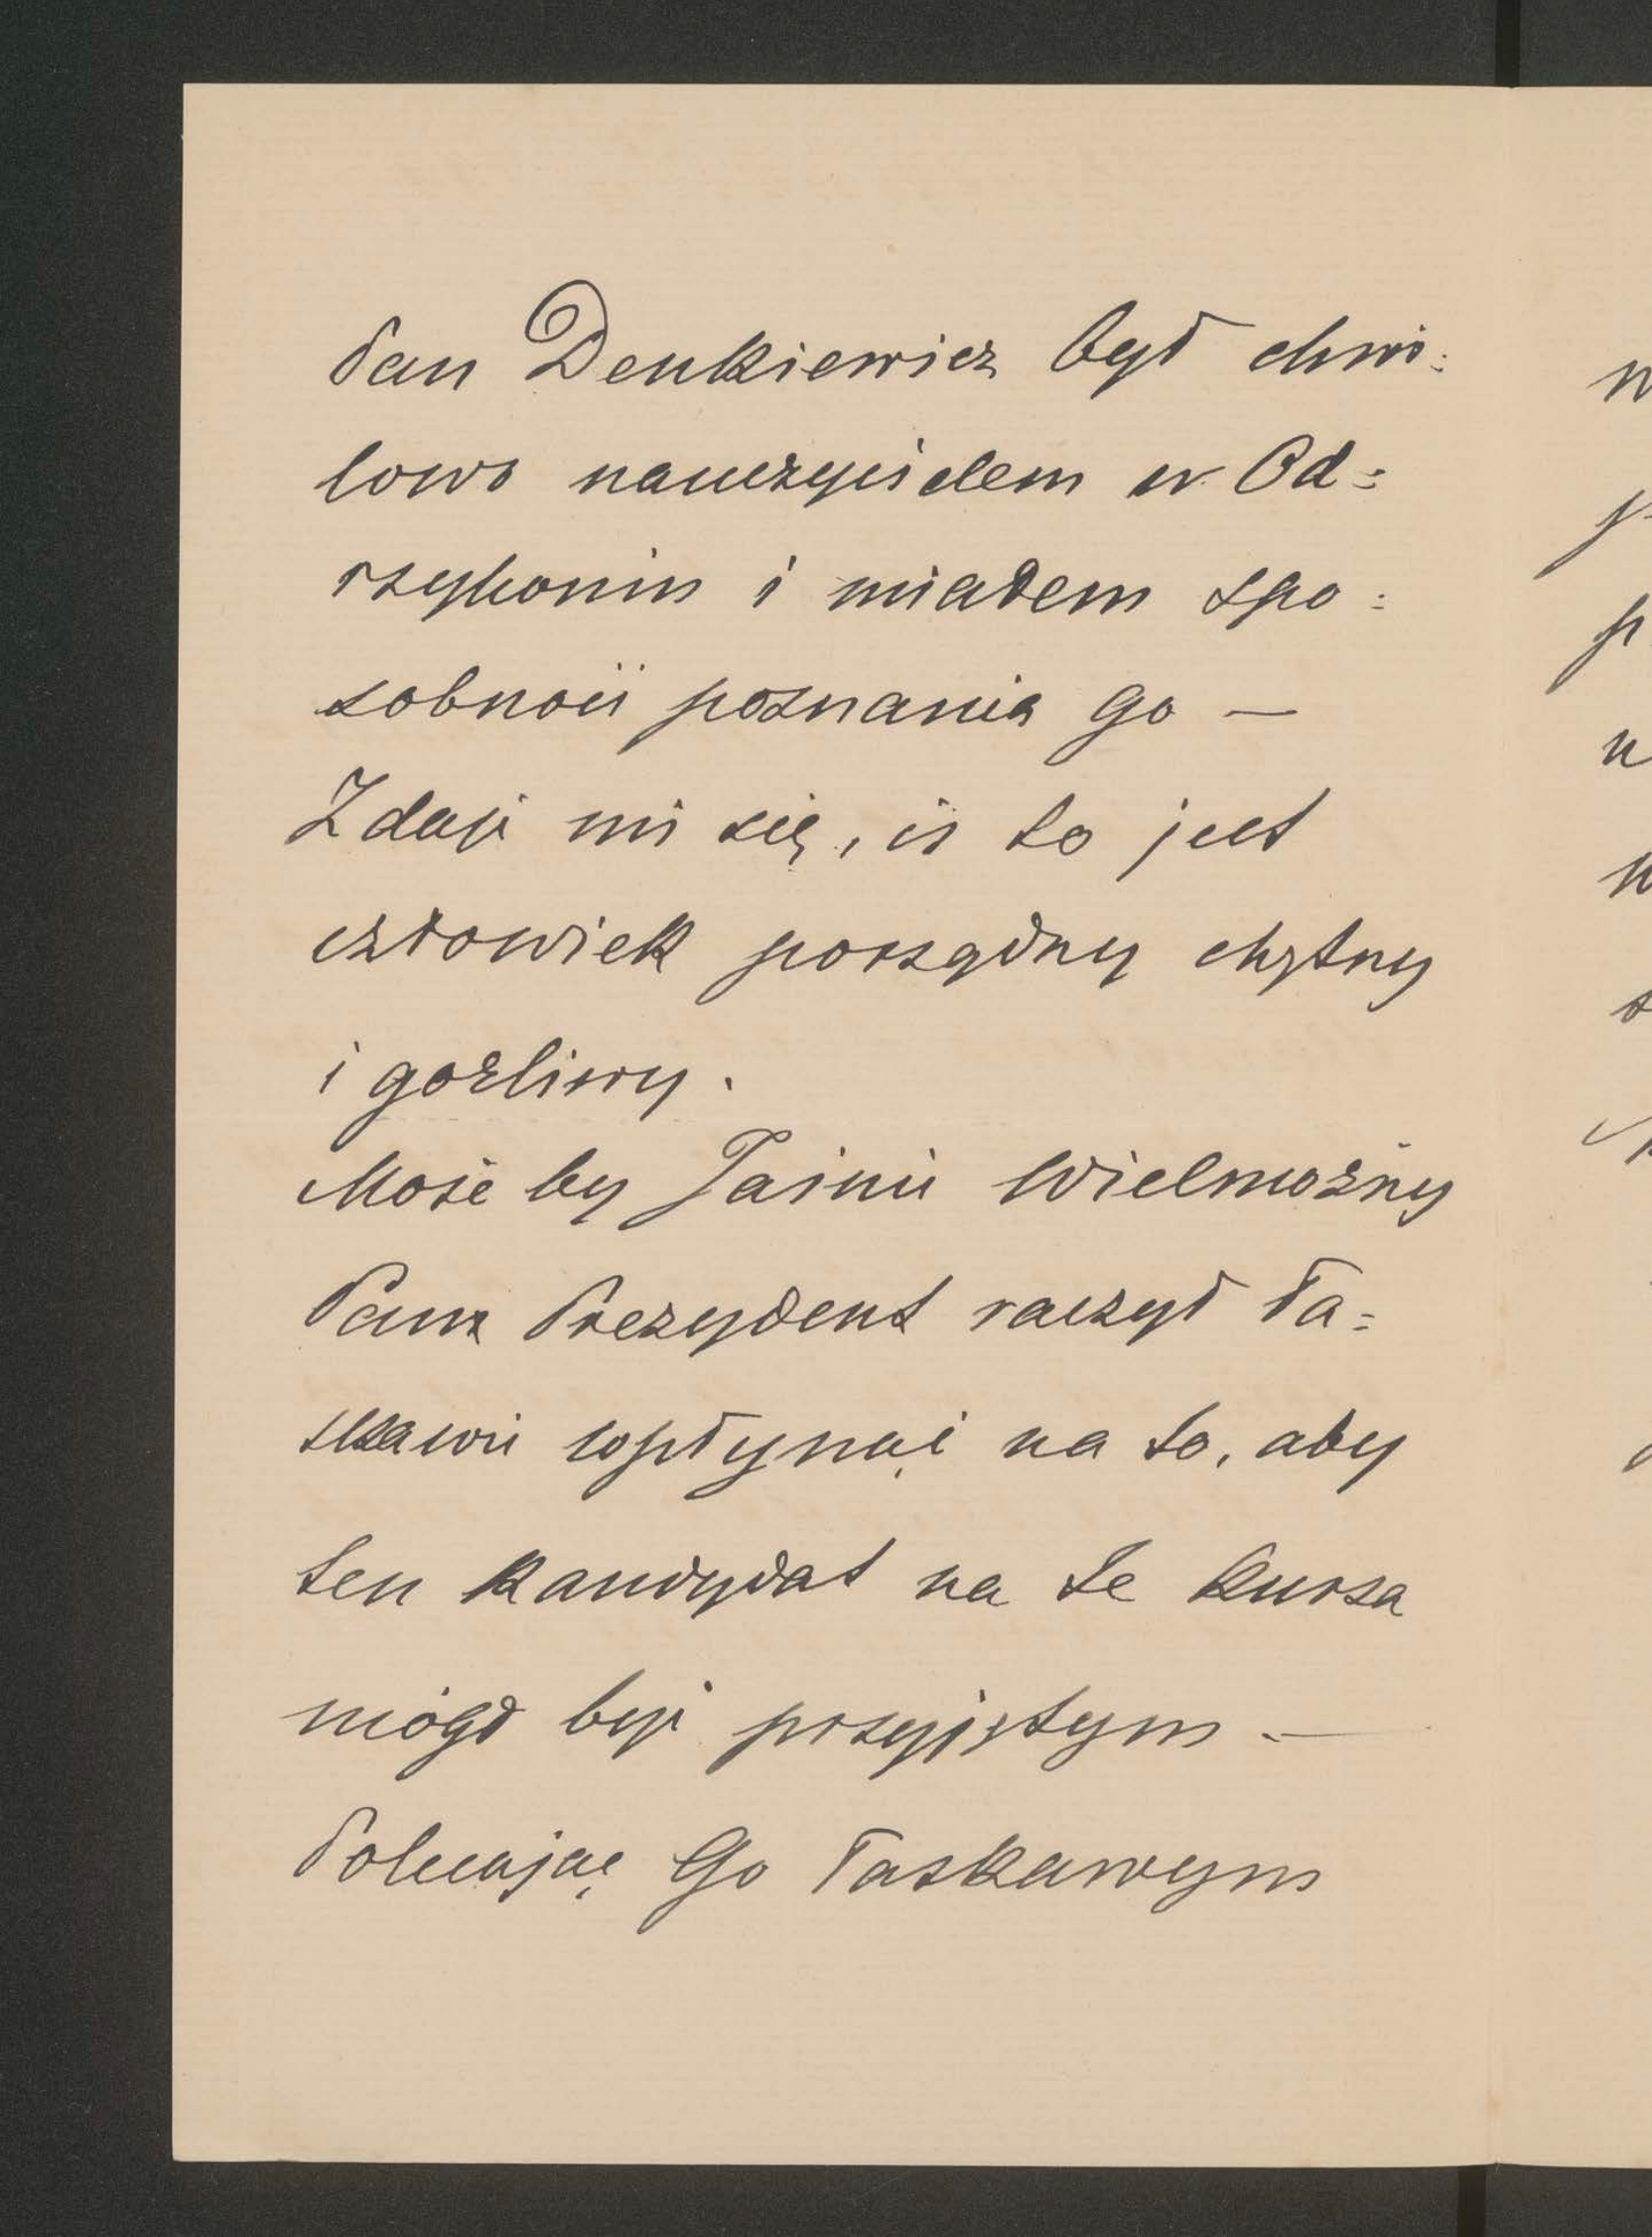 Pan Denkiewicz był chwi-
lowo nauczycielem w Od-
rzykoniu i miałem spo-
sobność poznania go —
Zdaje mi się, iż to jest
człowiek porządny chętny
i gorliwy.
Może by Jaśnie Wielmożny
Pan Prezydent raczył ła-
skawie wpłynąć na to, aby
ten kandydat na te kursa
mógł być przyjętym. —
Polecając Go łaskawym